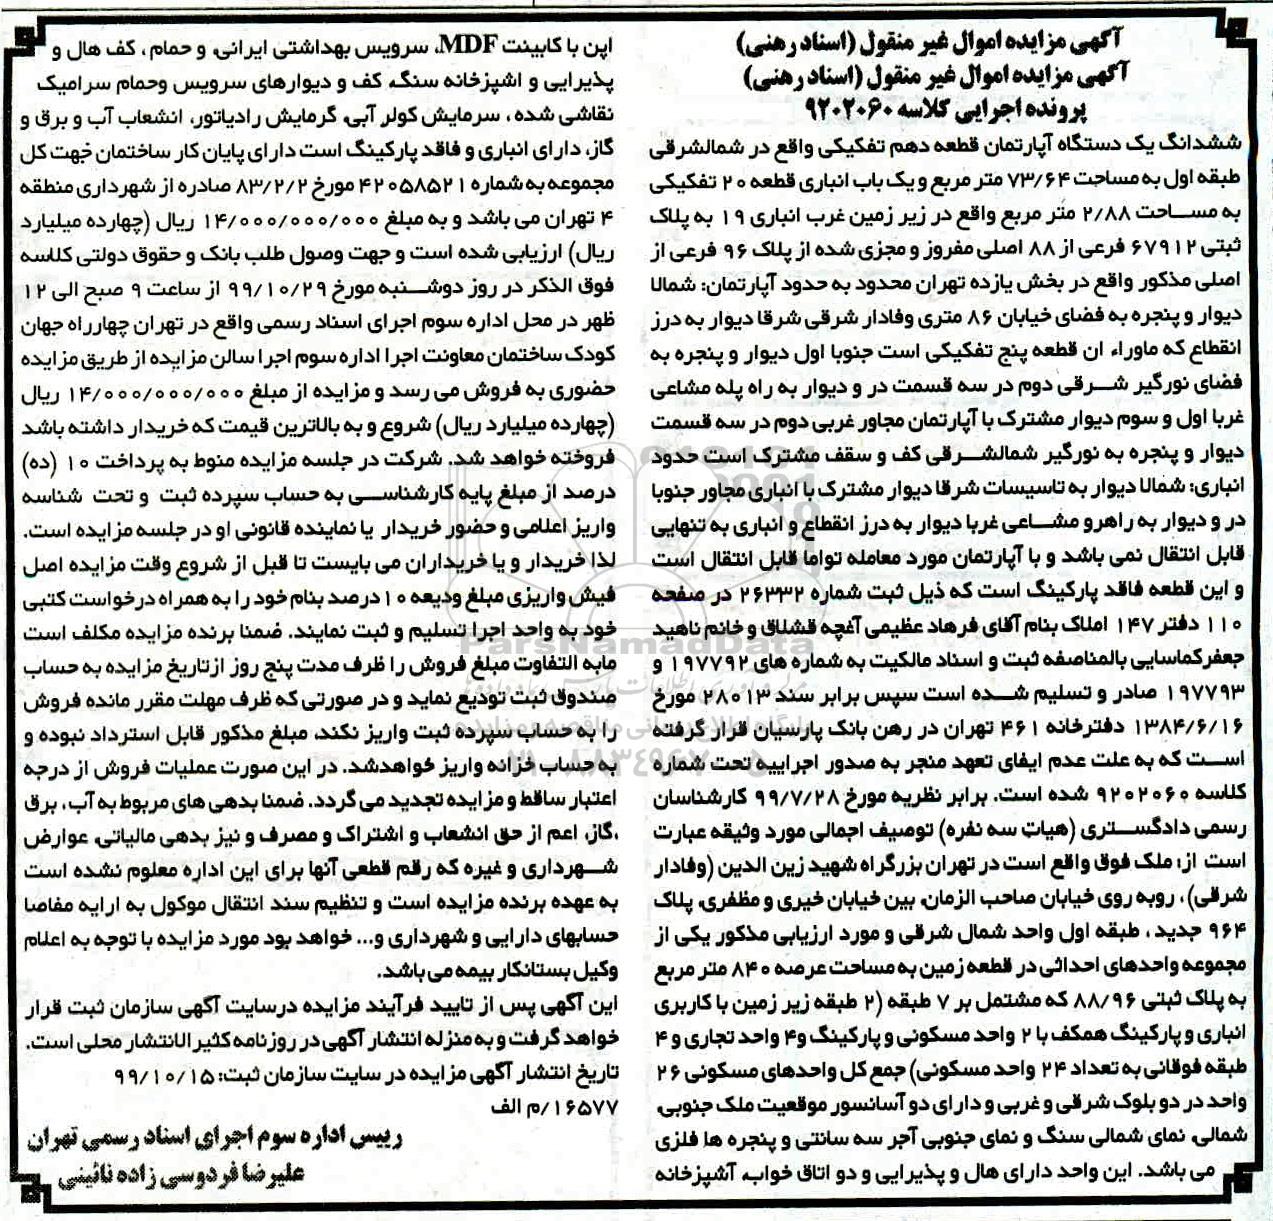 آگهی مزایده اموال غیر منقول (اسناد رهنی)
آگهی مزایده اموال غیر منقول (اسناد رهنی)
پرونده اجرایی کلاسه ۹۲۰۲۰۶۰
ششدانگ یک دستگاه آپارتمان قطعه دهم تفکیکی واقع در شمالشرقی
طبقه اول به مساحت ۷۳/۶۴ متر مربع و یک باب انباری قطعه ۲۰ تفکیکی
به مساحت ۲/۸۸ متر مربع واقع در زیر زمین غرب انباری ۱۹ به پلاک
ثبتی ۶۷۹۱۲ فرعی از ۸۸ اصلی مفروز و مجزی شده از پلاک ۹۶ فرعی از
اصلی مذکور واقع در بخش یازده تهران محدود به حدود آپارتمان: شمالا
دیوار و پنجره به فضای خیابان ۸۶ متری وفادار شرقی شرقا دیوار به درز
انقطاع که ماوراء ان قطعه پنج تفکیکی است جنوبا اول دیوار و پنجره به
فضای نورگیر شرقی دوم در سه قسمت در و دیوار به راه پله مشاعی
غربا اول و سوم دیوار مشترک با آپارتمان مجاور غربی دوم در سه قسمت
دیوار و پنجره به نورگیر شمالشرقی کف و سقف مشترک است حدود
انباری: شمالا دیوار به تاسیسات شرقا دیوار مشترک با انباری مجاور جنوبا
در و دیوار به راهرو مشاعی غربا دیوار به درز انقطاع و انباری به تنهایی
قابل انتقال نمی باشد و با آپارتمان مورد معامله تواما قابل انتقال است
و این قطعه فاقد پارکینگ است که ذیل ثبت شماره ۲۶۳۳۲ در صفحه
۱۱۰ دفتر ۱۴۷ املاک بنام آقای فرهاد عظیمی آغچه قشلاق و خانم ناهید
جعفرکماسایی بالمناصفه ثبت و اسناد مالکیت به شماره های ۱۹۷۷۹۲ و
۱۹۷۷۹۳ صادر و تسلیم شده است سپس برابر سند ۲۸۰۱۳ مورخ
۱۳۸۴/۶/۱۶ دفترخانه ۴۶۱ تهران در رهن بانک پارسیان قرار گرفته
است که به علت عدم ایفای تعهد منجر به صدور اجراییه تحت شماره
کلاسه ۹۲۰۲۰۶۰ شده است. برابر نظریه مورخ ۹۹/۷/۲۸ کارشناسان
رسمی دادگستری (هیات سه نفره) توصیف اجمالی مورد وثیقه عبارت
است از: ملک فوق واقع است در تهران بزرگراه شهید زین الدین (وفادار
شرقی)، روبه روی خیابان صاحب الزمان، بین خیابان خیری و مظفری، پلاک
۹۶۴ جدید، طبقه اول واحد شمال شرقی و مورد ارزیابی مذکور یکی از
مجموعه واحدهای احداثی در قطعه زمین به مساحت عرصه ۸۴۰ متر مربع
به پلاک ثبتی ۸۸/۹۶ که مشتمل بر ۷ طبقه (۲ طبقه زیر زمین با کاربری
انباری و پارکینگ همکف با ۲ واحد مسکونی و پارکینگ و۴ واحد تجاری و ۴
طبقه فوقانی به تعداد ۲۴ واحد مسکونی) جمع کل واحدهای مسکونی ۲۶
واحد در دو بلوک شرقی و غربی و دارای دو آسانسور موقعیت ملک جنوبی
شمالی، نمای شمالی سنگ و نمای جنوبی آجر سه سانتی و پنجره ها فلزی
می باشد. این واحد دارای هال و پذیرایی و دو اتاق خواب، آشپزخانه
اپن با کابینت MDF، سرویس بهداشتی ایرانی، و حمام، کف هال و
پذیرایی و اشپزخانه سنگ، کف و دیوارهای سرویس وحمام سرامیک
نقاشی شده، سرمایش کولر آبی، گرمایش رادیاتور، انشعاب آب و برق و
گاز، دارای انباری و فاقد پارکینگ است دارای پایان کار ساختمان جهت کل
مجموعه به شماره ۴۲۰۵۸۵۲۱ مورخ ۸۳/۲/۲ صادره از شهرداری منطقه
۴ تهران می باشد و به مبلغ ۱۴/۰۰۰/۰۰۰/۰۰۰ ریال (چهارده میلیارد
ریال) ارزیابی شده است و جهت وصول طلب بانک و حقوق دولتی کلاسه
فوق الذکر در روز دوشنبه مورخ ۹۹/۱۰/۲۹ از ساعت ۹ صبح الی ۱۲
ظهر در محل اداره سوم اجرای اسناد رسمی واقع در تهران چهارراه جهان
کودک ساختمان معاونت اجرا اداره سوم اجرا سالن مزایده از طریق مزایده
حضوری به فروش می رسد و مزایده از مبلغ ۱۴/۰۰۰/۰۰۰/۰۰۰ ریال
(چهارده میلیارد ریال) شروع و به بالاترین قیمت که خریدار داشته باشد
فروخته خواهد شد. شرکت در جلسه مزایده منوط به پرداخت ۱۰ (ده)
درصد از مبلغ پایه کارشناسی به حساب سپرده ثبت و تحت شناسه
واریز اعلامی و حضور خریدار یا نماینده قانونی او در جلسه مزایده است.
لذا خریدار و یا خریداران می بایست تا قبل از شروع وقت مزایده اصل
فیش واریزی مبلغ ودیعه ۱۰درصد بنام خود را به همراه درخواست کتبی
خود به واحد اجرا تسلیم و ثبت نمایند. ضمنا برنده مزایده مکلف است
مابه التفاوت مبلغ فروش را ظرف مدت پنج روز ازتاریخ مزایده به حساب
صندوق ثبت تودیع نماید و در صورتی که ظرف مهلت مقرر مانده فروش
را به حساب سپرده ثبت واریز نکند، مبلغ مذکور قابل استرداد نبوده و
به حساب خزانه واریز خواهدشد. در این صورت عملیات فروش از درجه
اعتبار ساقط و مزایده تجدید می گردد. ضمنا بدهی های مربوط به آب، برق
،گاز، اعم از حق انشعاب و اشتراک و مصرف و نیز بدهی مالیاتی، عوارض
شهرداری و غیره که رقم قطعی آنها برای این اداره معلوم نشده است
به عهده برنده مزایده است و تنظیم سند انتقال موکول به ارایه مفاصا
حسابهای دارایی و شهرداری و... خواهد بود مورد مزایده با توجه به اعلام
وکیل بستانکار بیمه می باشد.
این آگهی پس از تایید فرآیند مزایده درسایت آگهی سازمان ثبت قرار
خواهد گرفت و به منزله انتشار آگهی در روزنامه کثیرالانتشار محلی است.
تاریخ انتشار آگهی مزایده در سایت سازمان ثبت: ۹۹/۱۰/۱۵
۱۶۵۷۷/م الف
رییس اداره سوم اجرای اسناد رسمی تهران
علیرضا فردوسی زاده نائینی
ParsNamadData